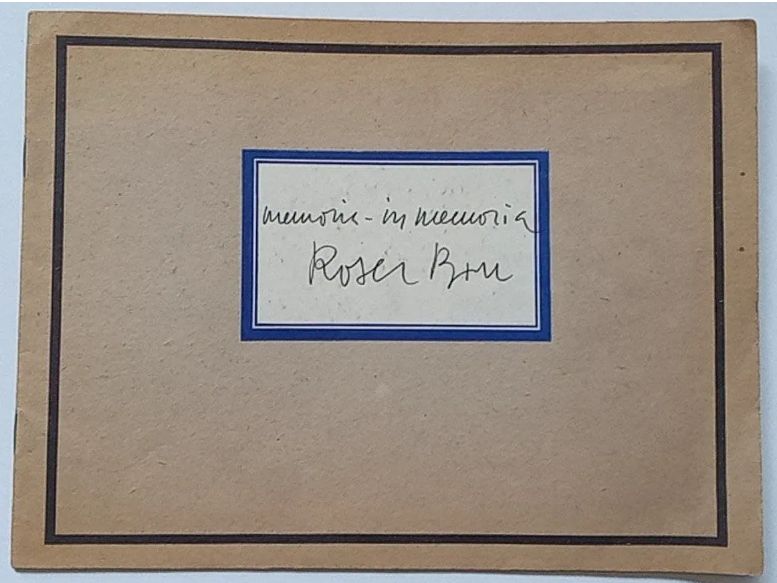 memoria - in memoria
Roser Bru